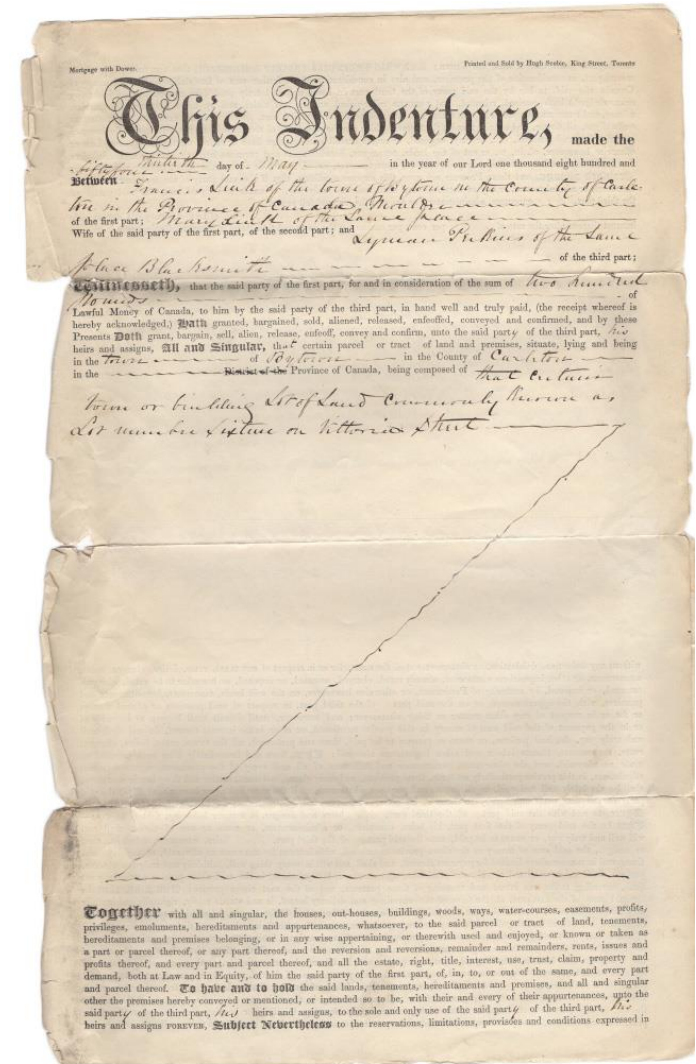 Mortgage with Dower.
Printed and Sold by Hugh Scobie, King Street, Toronto
This Indenture, made the
day of May in the year of our Lord one thousand eight hundred and
fifty four
Between Francis of the town of Bytown in the County of Carle-
ton in the Province of Canada,
of the first part; Mary of the Same place
Wife of the said party of the first part, of the second part; and Lyman Perkins of the Same
place Blacksmith of the third part;
Witnesseth, that the said party of the first part, for and in consideration of the sum of two hundred
Pounds of
Lawful Money of Canada, to him by the said party of the third part, in hand well and truly paid, (the receipt whereof is
hereby acknowledged,) Hath granted, bargained, sold, aliened, released, enfeoffed, conveyed and confirmed, and by these
Presents Doth grant, bargain, sell, alien, release, enfeoff, convey and confirm, unto the said party of the third part, his
heirs and assigns, All and Singular, that certain parcel or tract of land and premises, situate, lying and being
in the town of Bytown in the County of Carleton
in the District of the Province of Canada, being composed of that certain
town or building Lot of Land Commonly Known as
Lot number Sixteen on Vittoria Street
Together with all and singular, the houses, out-houses, buildings, woods, ways, water-courses, easements, profits,
privileges, emoluments, hereditaments and appurtenances, whatsoever, to the said parcel or tract of land, tenements,
hereditaments and premises belonging, or in any wise appertaining, or therewith used and enjoyed, or known or taken as
a part or parcel thereof, or any part thereof, and the reversion and reversions, remainder and remainders, rents, issues and
profits thereof, and every part and parcel thereof, and all the estate, right, title, interest, use, trust, claim, property and
demand, both at Law and in Equity, of him the said party of the first part, of, in, to, or out of the same, and every part
and parcel thereof. To have and to hold the said lands, tenements, hereditaments and premises, and all and singular
other the premises hereby conveyed or mentioned, or intended so to be, with their and every of their appurtenances, unto the
said party of the third part, his heirs and assigns, to the sole and only use of the said party of the third part, his
heirs and assigns FOREVER, Subject Nevertheless to the reservations, limitations, provisoes and conditions expressed in